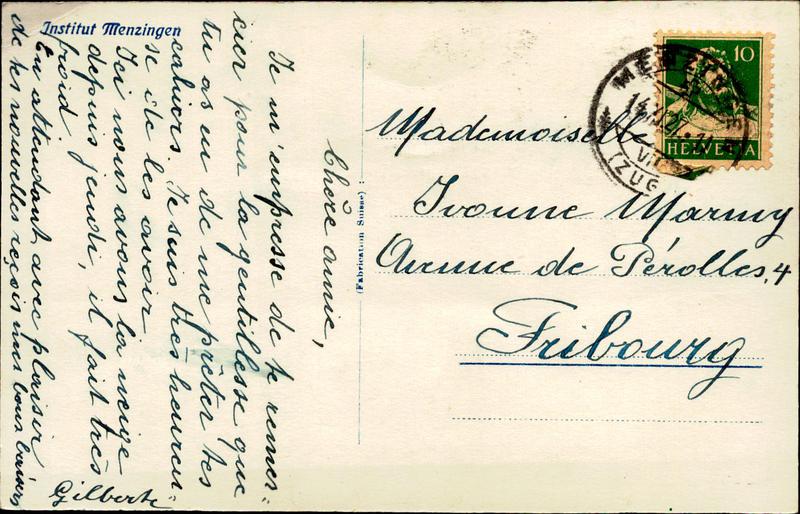 Institut Menzingen
Chère amie,
Je m'empresse de te remer=
cier pour la gentillesse que
tu as eu de me prêter tes
cahiers. Je suis très heureu=
se de les avoir
Ici nous avons la neige
depuis jeudi, il fait très
froid.
En attendant avec plaisir
de tes nouvelles reçois mes bons baisers
Gilberte
(Fabrication Suisse)
10
HELVETIA
MENZINGEN
(ZUG
Mademoiselle
Yvonne Marmy
Avenue de Pérolles, 4
Fribourg